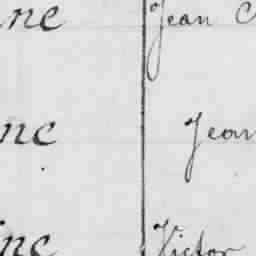 nc Jean C
nc Jean
nc Victor